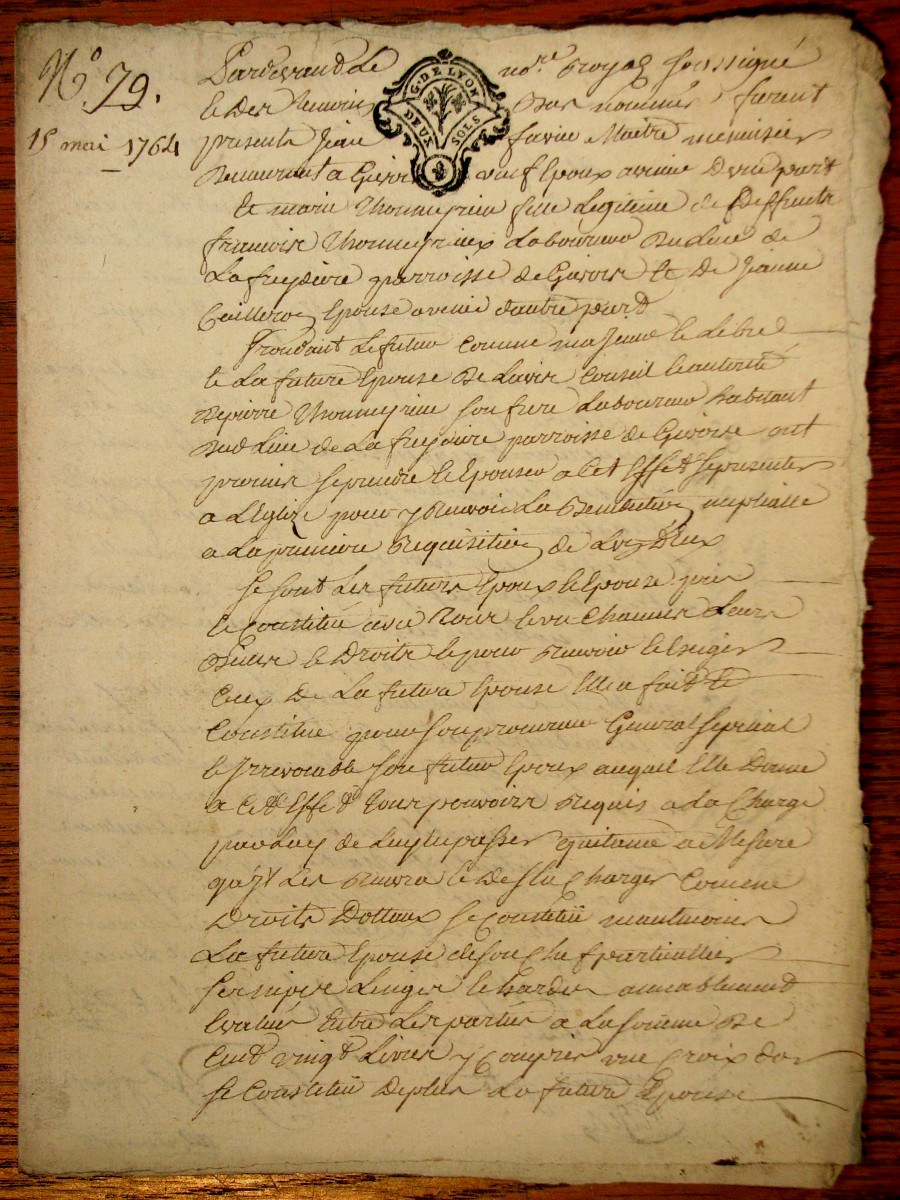 N° 79.
15 mai 1764
G. DE LYON
DEUX SOLS
Pardevant Le no.re Royal soussigné
et des temoins bas nommés furent
presents Jean favier Maitre menuisier
Demeurant a Givors veuf Epoux avenir D'une part
Et marie Thomeyrieu fille Legitime de Deffunts
francois Thomeyrieux Laboureur du Lieu de
La freydiere parroisse de Givors et De Jeanne
Epouse avenir d'autre part
Procedant Le futur comme majeur et Libre
et La future Epouse De Lavis Conseil et autorité
De pierre Thomeyrieu son frere Laboureur habitant
Dud Lieu de La freydiere parroisse de Givors ont
promis se prendre et Epouser a cet Effet se presenter
a L'Eglize pour y Recevoir La Benediction nuptialle
a La premiere Requisition de L'un D'Eux
Se sont Les futurs Epoux et Epouse pris
et Constitué avec tous et un Chacuns Leurs
Biens et Droits et pour Recevoir et Exiger
Ceux De La future Epouse Elle a fait et
Constitué pour son procureur General Special
et Irrevocable son futur Epoux auquel Elle Donne
a cet Effet tous pouvoirs Requis a La Charge
par Luy de Luy En passer quitance a Mesure
qu'Jl Les Recevra et De s'En Charger Comme
Droits Dottaux se Constitüe neantmoins
La future Epouse de son Chef particullier
ses nipes Linges et hardes amiablement
Evalués Entre Les parties a La somme De
Cent vingt Livres y Compris une Croix d'or
se Constitüe De plus La future Epouse